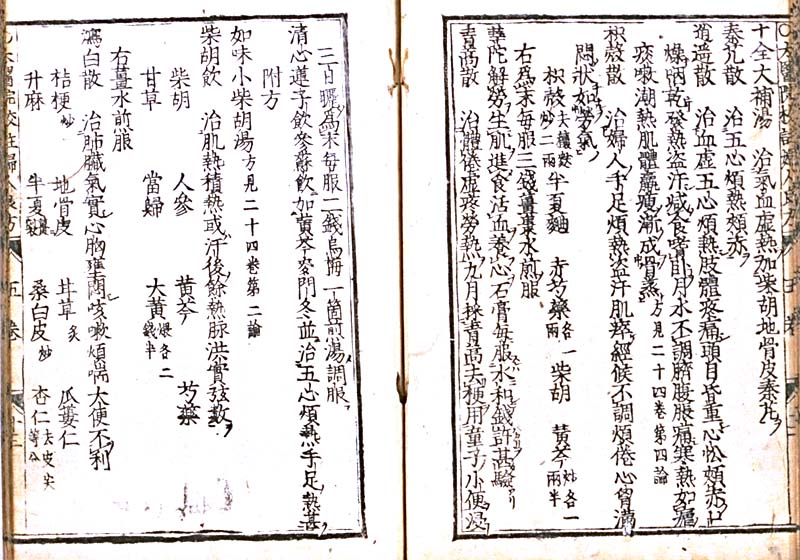 十全大補湯 治氣血虛熱加柴胡地骨皮秦艽
秦艽散 治五心煩熱頰赤
逍遥散 治血虛五心煩熱肢體疼痛頭目昏重心忪頰赤口
燥咽乾發熱盜汗減食嗜臥月水不調臍腹脹痛寒熱如瘧
痰嗽潮熱肌體羸瘦漸成骨蒸方見二十四卷第四論
枳殼散 治婦人手足煩熱盜汗肌瘁經候不調煩倦心胷滿
悶狀如勞氣
枳殼 炒二兩 半夏麯 赤芍藥 各一兩 柴胡 黃芩 炒各一兩半
右爲末每服三錢薑棗水煎服
華陀解勞生肌進食活血養心石膏每服水和錢許甚驗
青蒿散 治體倦虛疼勞熱九月採青蒿去梗用童子小便浸
三日曬爲末每服二錢烏梅一箇煎湯調服
清心蓮子飲參蘇飲加黃芩麥門冬並治五心煩熱手足熱甚
附方
加味小柴胡湯方見二十四卷第二論
柴胡飲 治肌熱積熱或汗後餘熱脉洪實弦數
柴胡 人參 黃芩 芍藥
甘草 當歸 大黃 各二錢半
右薑水煎服
瀉白散 治肺臟氣實心胸壅悶咳嗽煩喘大便不利
桔梗 炒 地骨皮 甘草 炙 瓜蔞仁
升麻 半夏 桑白皮 炒 杏仁 去皮尖等分